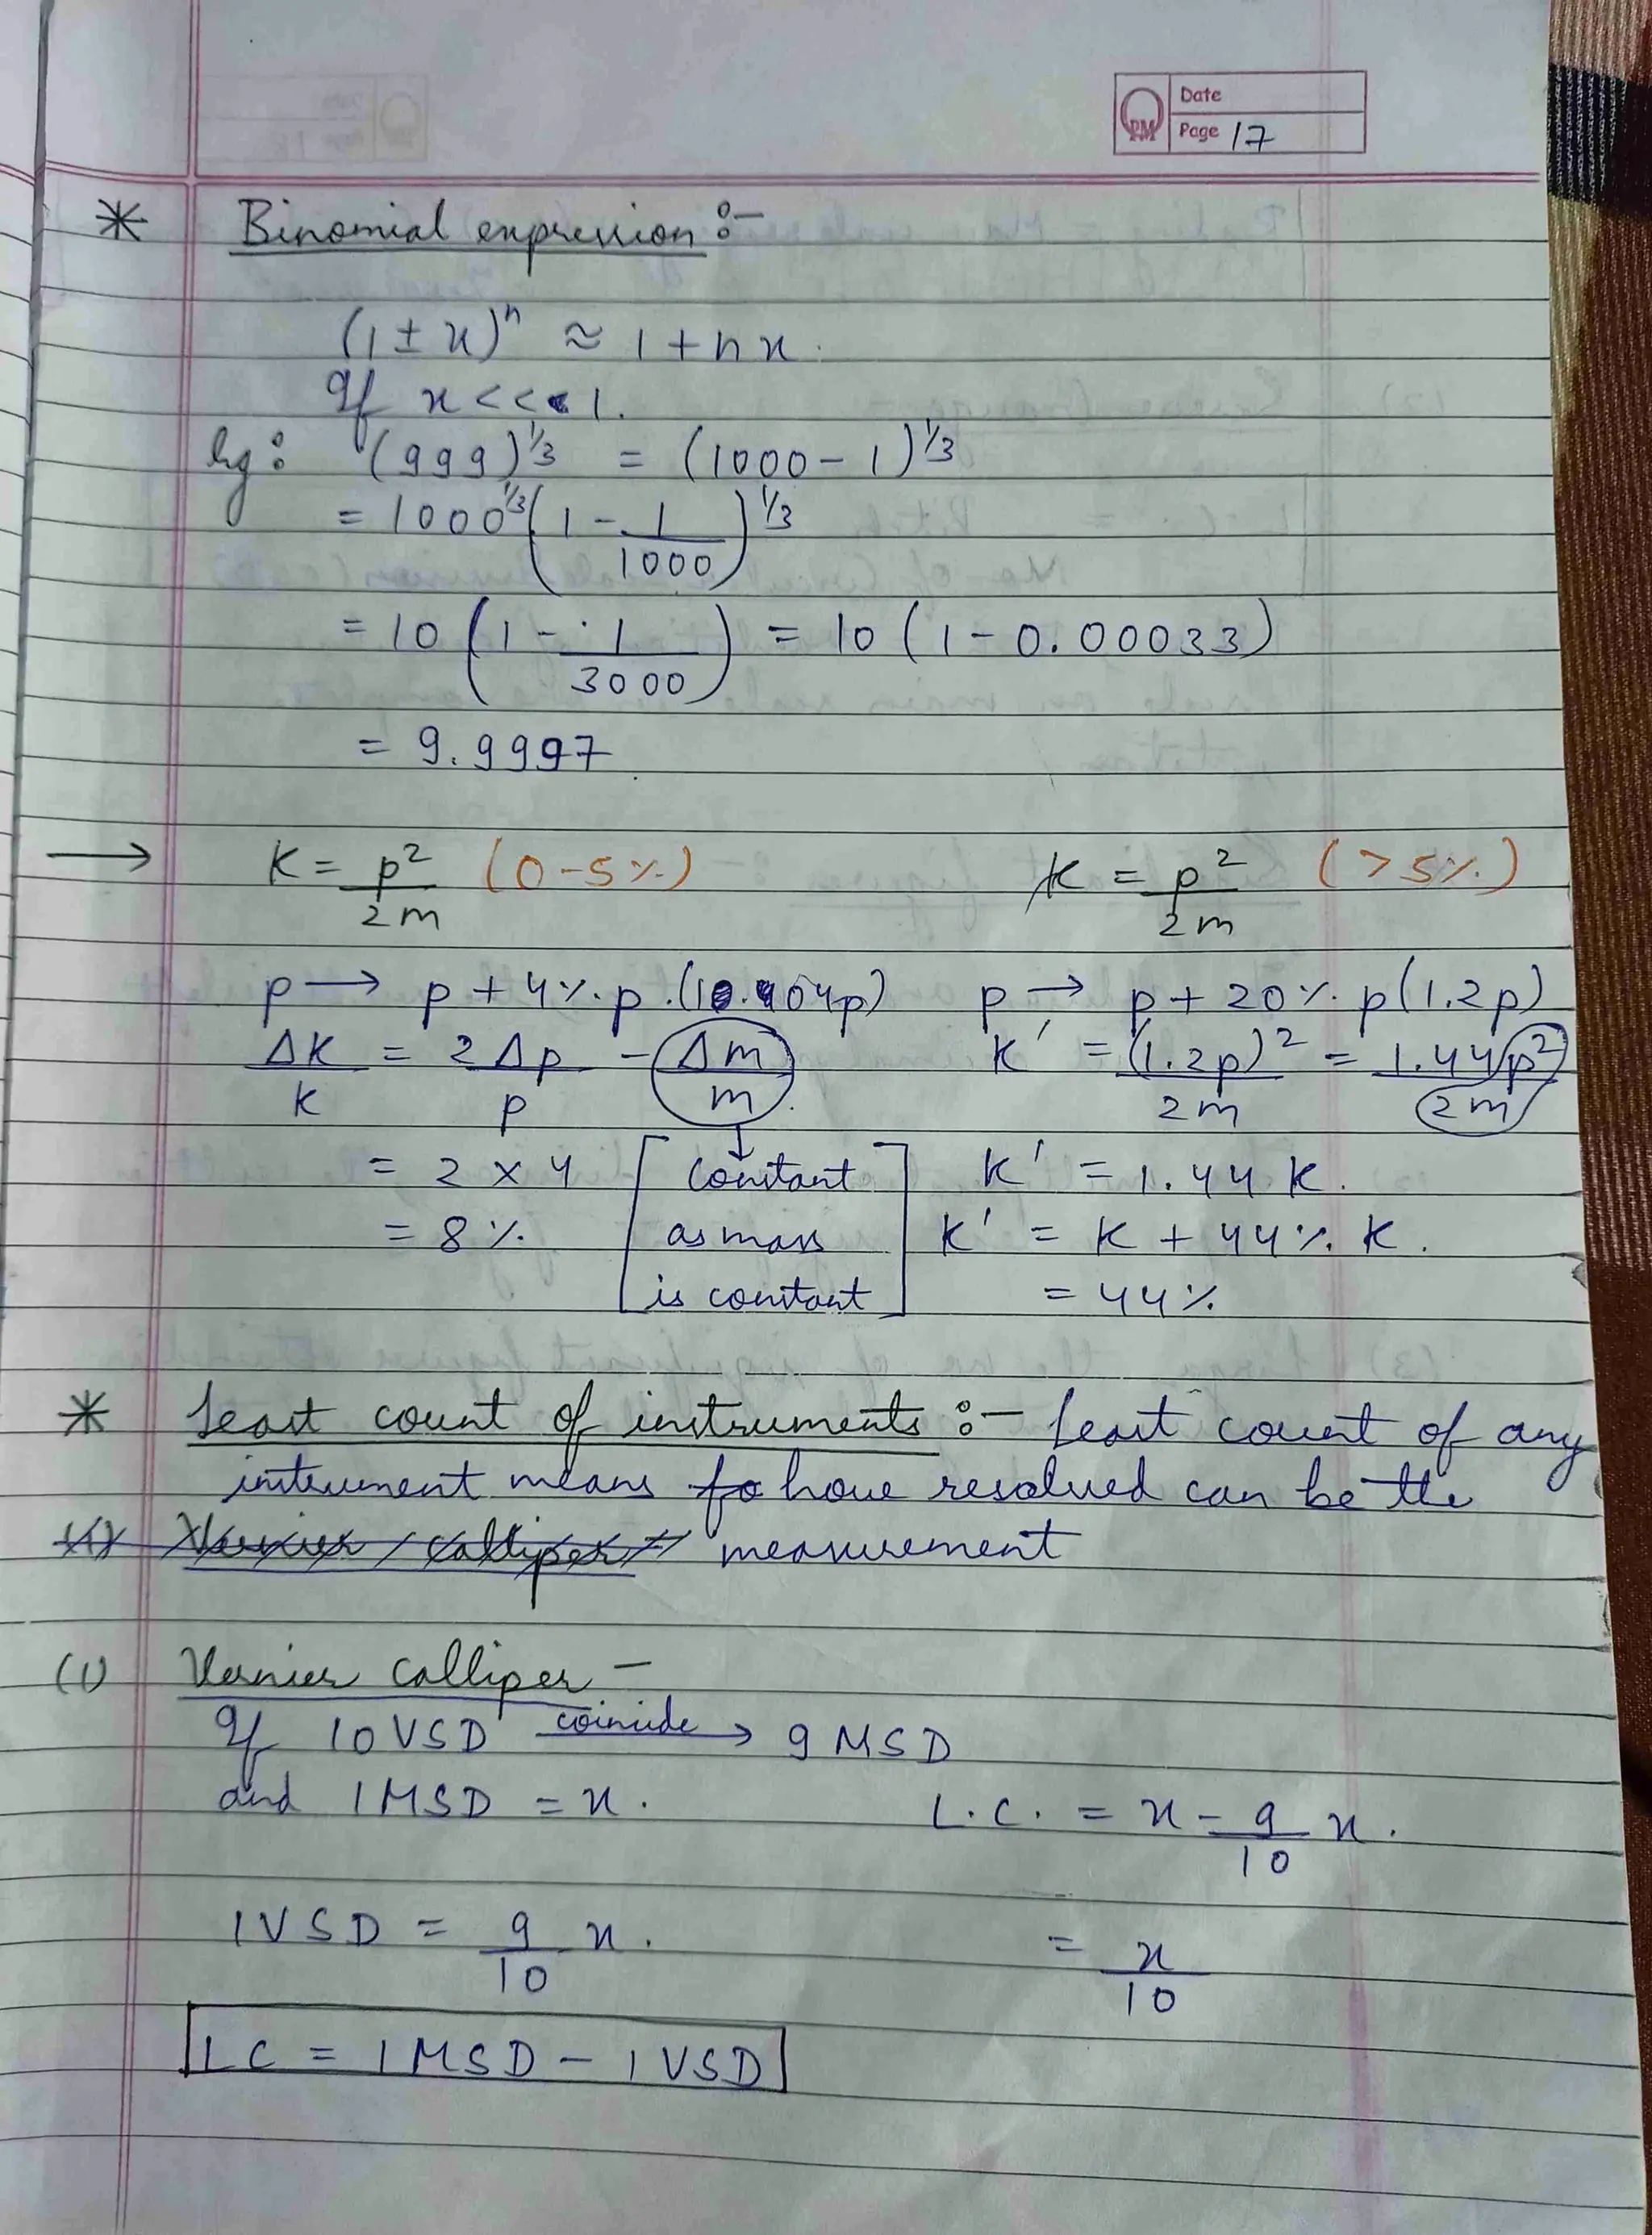 PM Date
Page 17
* Binomial expression :-
(1 ± x)ⁿ ≈ 1 + nx.
If x <<< 1.
Eg: (999)^1/3 = (1000 - 1)^1/3
= 1000^1/3 (1 - 1/1000)^1/3
= 10 (1 - 1/3000) = 10 (1 - 0.00033)
= 9.9997
→ K = p²/2m (0-5%)
p → p + 4%. p. (1.04p)
ΔK/K = 2Δp/p - Δm/m
= 2 × 4
= 8%
[constant
as mass
is constant]
K = p²/2m (>5%)
p → p + 20%. p (1.2p)
K' = (1.2p)²/2m = 1.44p²/2m
K' = 1.44 K.
K' = K + 44%. K.
= 44%
* Least count of instruments :- Least count of any
instrument means to have resolved can be the
(1) Vernier calliper - measurement
(1) Vernier calliper -
If 10 VSD coincide → 9 MSD
and 1 MSD = x.
1 VSD = 9/10 x.
LC = 1 MSD - 1 VSD
L.C. = x - 9/10 x.
= x/10